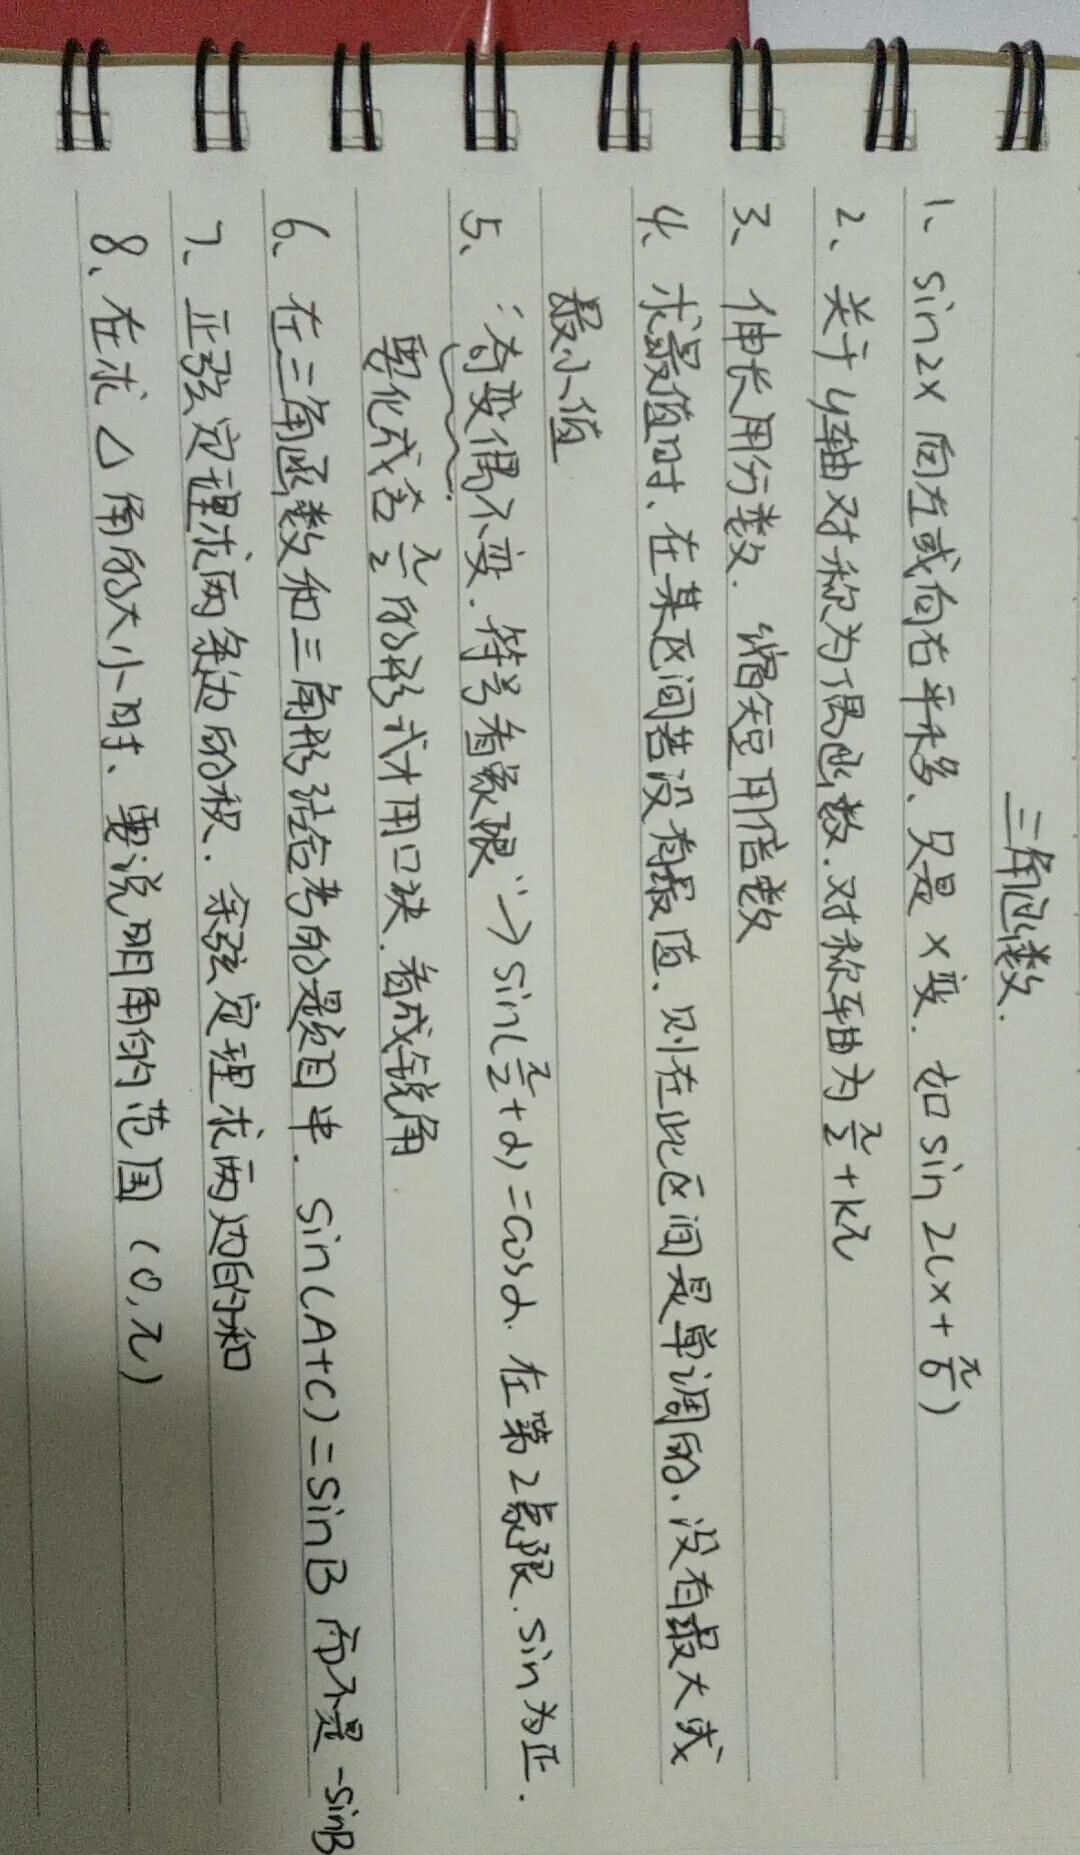 三角函数.
1、sin2x向左或向右平移、只是x变. 如sin2(x+π/6)
2、关于y轴对称为偶函数.对称轴为π/2+kπ
3、伸长用分数. 缩短用倍数
4、求最值时、在某区间若没有最值、则在此区间是单调的、没有最大或
最小值
5、“奇变偶不变.符号看象限”→sin(π/2+α)=cosα. 在第2象限.sin为正.
要化成含π/2的形式才用口诀.看成锐角
6、在三角函数和三角形结合考的题目中. sin(A+C)=sinB 而不是-sinB
7、正弦定理求两条边的积. 余弦定理求两边的和
8、在求△角的大小时、要说明角的范围(0,π)